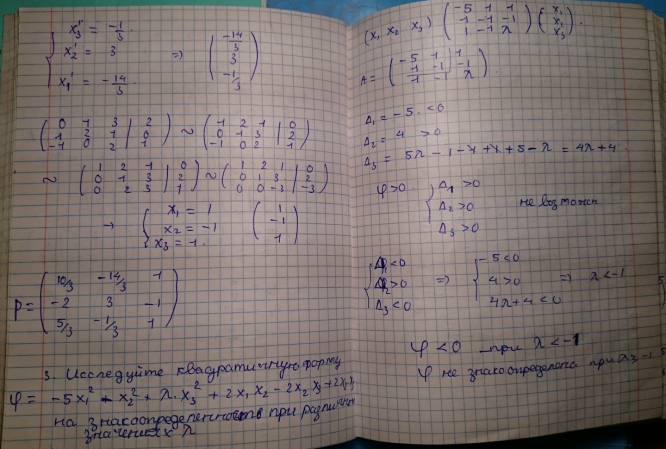 x₃' = -1/3
x₂' = 3 ⇒ (-14/3 3 -1/3)
x₁' = -14/3
(0 1 3 | 2
-1 2 1 | 0
-1 0 2 | 1) ~ (-1 2 1 | 0
0 1 3 | 2
-1 0 2 | 1)
~ (1 2 1 | 0
0 1 3 | 2
0 2 3 | 1) ~ (1 2 1 | 0
0 1 3 | 2
0 0 -3 | -3)
→ { x₁ = 1
x₂ = -1
x₃ = 1. (1 -1 1)
P = (10/3 -14/3 1
-2 3 -1
5/3 -1/3 1)
3. Исследуйте квадратичную форму
φ = -5x₁² - x₂² + λ·x₃² + 2x₁x₂ - 2x₂x₃ + 2x₁x₃
на знакоопределенность при различных
значениях λ
(x₁ x₂ x₃) (-5 1 1
1 -1 -1
1 -1 λ) (x₁ x₂ x₃)
A = (-5 1 1
1 -1 -1
1 -1 λ)
Δ₁ = -5 < 0
Δ₂ = 4 > 0
Δ₃ = 5λ - 1 - 1 + 1 + 5 - λ = 4λ + 4
φ > 0 { Δ₁ > 0
Δ₂ > 0 не возможн
Δ₃ > 0
{ Δ₁ < 0
Δ₂ > 0
Δ₃ < 0 ⇒ { -5 < 0
4 > 0
4λ + 4 < 0 ⇒ λ < -1
φ < 0 при λ < -1
φ не знакоопределена при λ ≥ -1